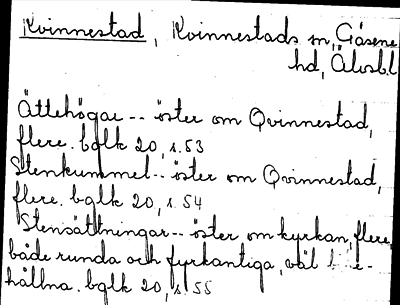 Kvinnestad, Kvinnestads sn, Gäsene
hd, Älvsb.l
Ättehögar -- öster om Qvinnestad,
flere. bglk 20, s. 53
Stenkummel -- öster om Qvinnestad,
flere. bglk 20, s. 54
Stensättningar -- öster om kyrkan, flere,
både runda och fyrkantiga, väl
hållna. bglk 20, s. 55